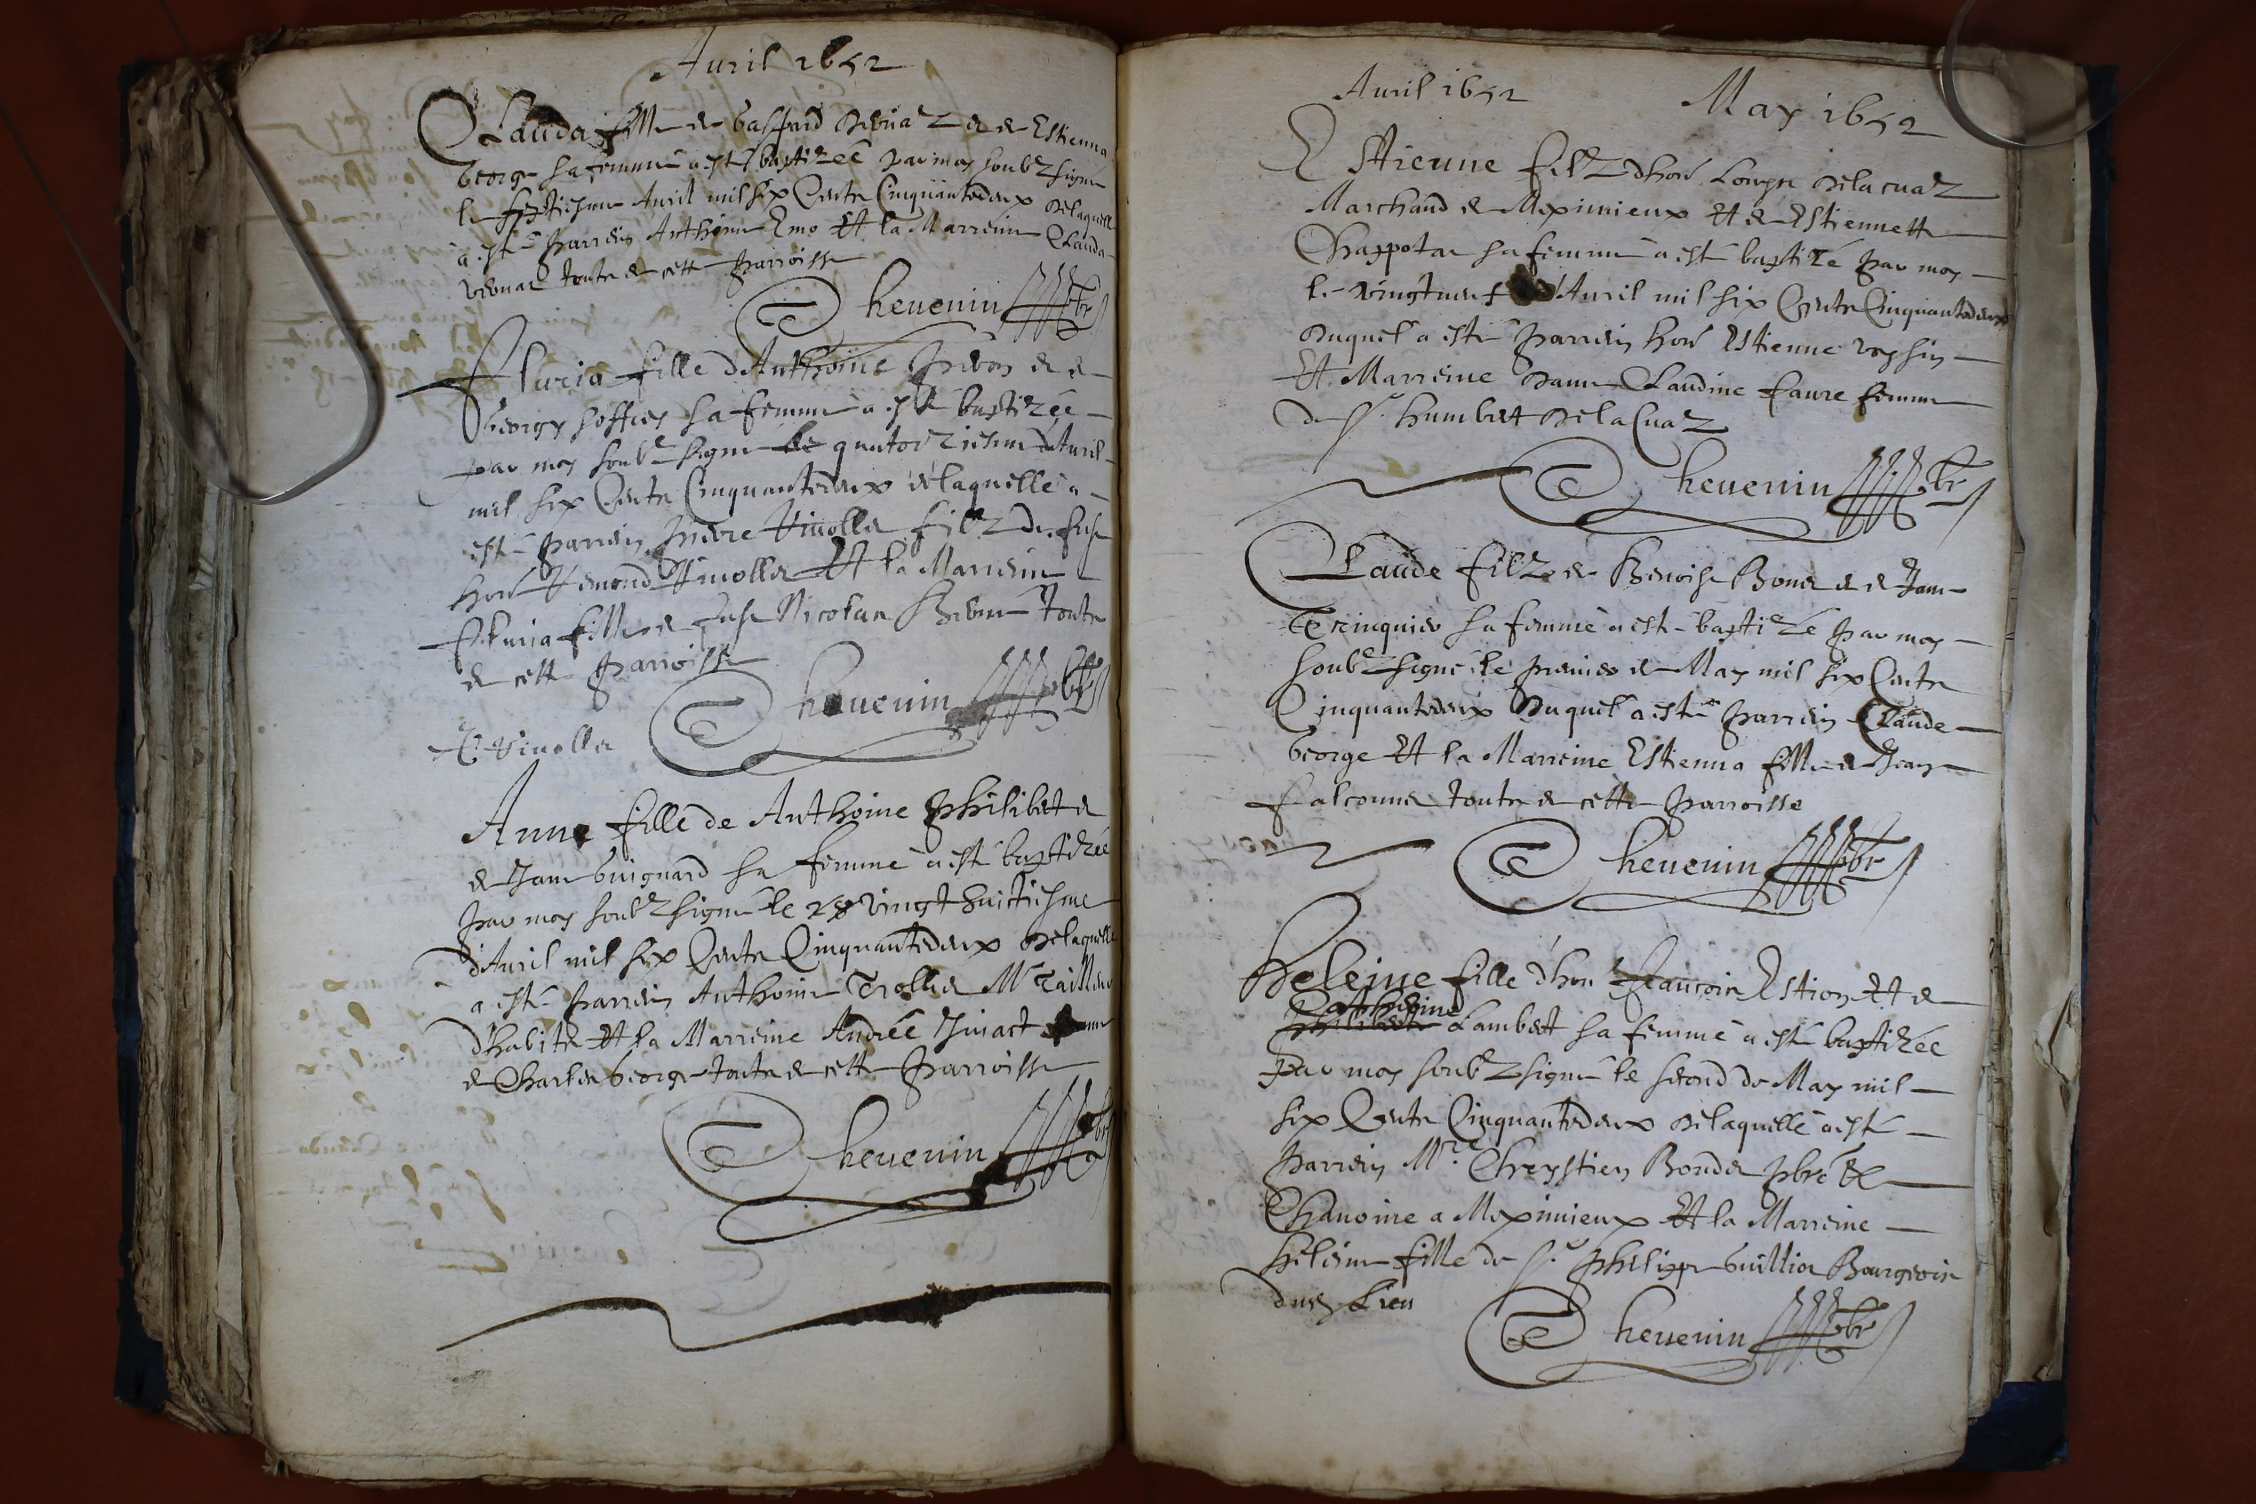 Auril 1652
Clauda fille de Gaspard & de Estienna
George sa femme a esté baptizée par moy soubzsigné
le Auril mil six Cents Cinquantedeux delaquelle
a esté parrein Anthoine Emo Et la Marreine Clauda
touts de cette parroisse
Cheuenin pbr
fille d'Anthoine & de
George sa femme a esté baptizée
par moy soubzsigné le quatorziesme d'Auril
mil six Cents Cinquantedeux delaquelle a
esté parrein Piere Viuollet filz de fust
hon Viuollet Et la Marreine
fille de fust Nicolas touts
de cette parroisse
Cheuenin pbr
Viuollet
Anne fille de Anthoine Philibert &
de Jane Guignard sa femme a esté baptizée
par moy soubzsigné le 28 vingt huictiesme
d'Auril mil six Cents Cinquantedeux delaquelle
a esté parrein Anthoine Trollier Mr Tailleur
d'habits Et la Marreine Andrée femme
de Charles George touts de cette parroisse
Cheuenin pbr
Auril 1652
May 1652
Estienne filz d'hon Louys Delacuaz
Marchand de Meximieux Et de Estiennette
Chappotas sa femme a esté baptizé par moy
le vingtneuf d'Auril mil six Cents Cinquantedeux
Duquel a esté parrein hon Estienne voysin
Et Marreine Dame Claudine Faure femme
de Sr humbert DelaCuaz
Cheuenin pbr
Claude filz de Benoist Bonet & de Jane
sa femme a esté baptizé par moy
soubzsigné le premier de May mil six Cents
Cinquantedeux Duquel a esté parrein Claude
George Et la Marreine Estienna fille de Jean
Falconnet touts de cette parroisse
Cheuenin pbr
Heleine fille d'hon Francois Estion Et de
Catherine Lambert sa femme a esté baptizée
Par moy soubzsigné le second de May mil
six Cents Cinquantedeux delaquelle a esté
parrein Mre Chrystien Bondet pbre &
Chanoine a Meximieux Et la Marreine
heleine fille de Sr Philippe Guillion Bourgeois
dud Lieu
Cheuenin pbr